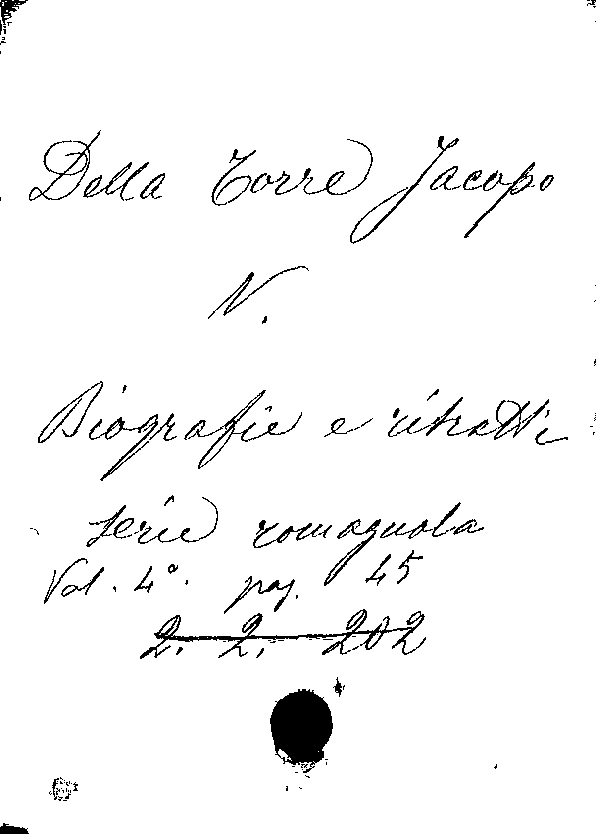 Della Torre Jacopo
N.
Biografie e ritratti
serie romagnola
Vol. 4°. pag. 45
2. 2. 202